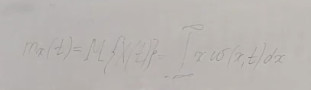 mₓ(t) = M{X(t)} = ∫_{-∞}^{∞} x ω(x,t) dx